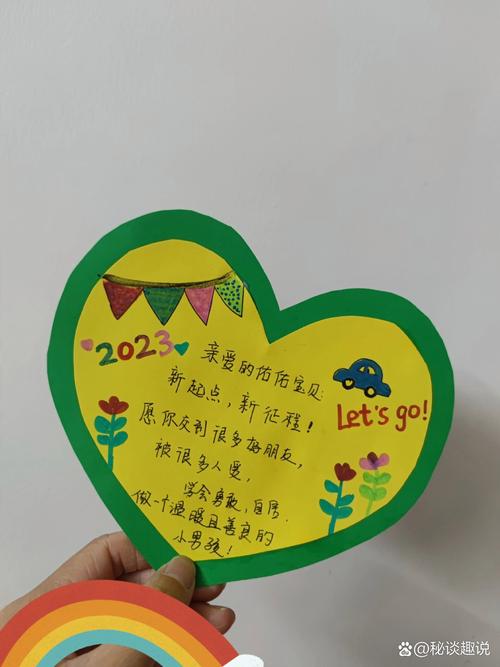 2023
亲爱的佑佑宝贝:
新起点，新征程！
愿你交到很多好朋友，
被很多人爱，
学会勇敢，自信，
做一个温暖且善良的
小男孩！
Let's go!
@秘谈趣说